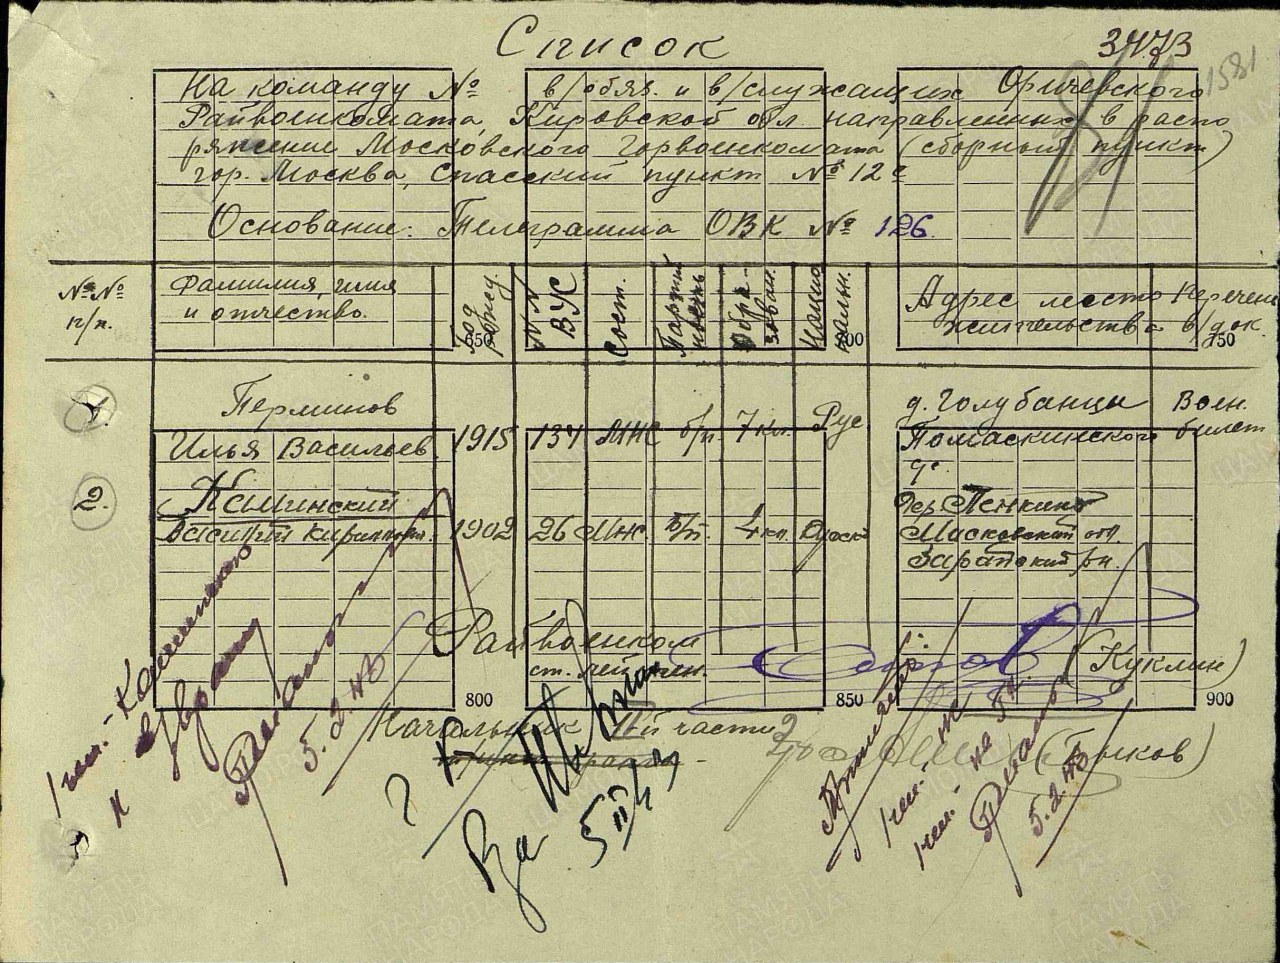 Список
3473
1581
На команду № в/обяз. и в/служащих Оричевского
Райвоенкомата, Кировской обл. направленных в распо
ряжение Московского Горвоенкомата (сборный пункт)
гор. Москва, Спасский пункт № 12с
Основание: Телеграмма ОВК № 126
№№ п/п.
Фамилия, имя и отчество.
Год рожд.
№№ ВУС
Сост.
Партийность
Образован.
Национальн.
Адрес место жительства
Перечень в/док.
650
700
750
1.
Перминов
Илья Васильев.
1915
134
МНС
б/п.
7 кл.
Рус
д. Голубанцы
Помаскинского
с/с
Воен. билет
2.
Василий Кириллов.
1902
26
МНС.
б/п.
4 кл.
Русск
Дер. Пенкино
Московский обл.
Зарайский р-н.
Райвоенком
ст. лейтен.
(Куклин)
800
850
900
Начальник II-й части
5.2.43
5 II 43
5.2.43
ПАМЯТЬ НАРОДА